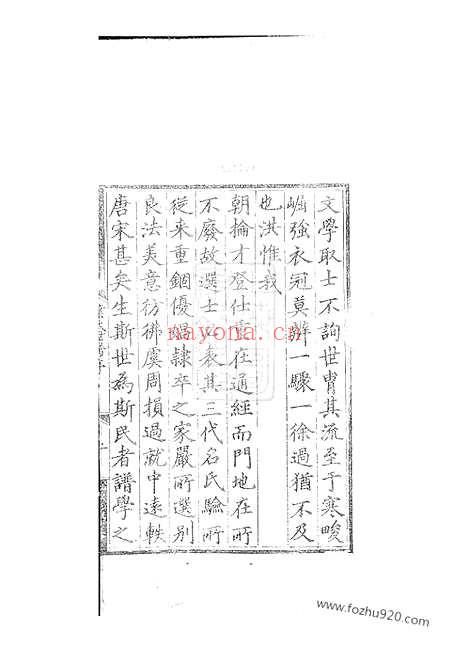 文學取士不詢世胄其流至于寒畯
崛強衣冠莫辨一驟一徐過猶不及
也洪惟我
朝掄才登仕重在通經而門地在所
不廢故選士必表其三代名氏驗所
從來重錮優娼隸卒之家嚴所選別
良法美意彷彿虞周損過就中遠軼
唐宋甚矣生斯世為斯民者譜學之
nayona.cn
www.fozhu920.com